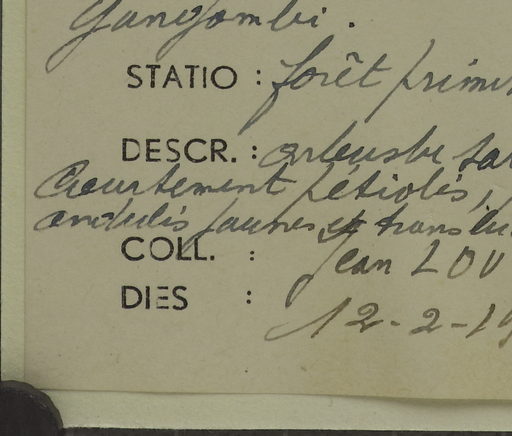 Yangambi.
STATIO : forêt primi
DESCR. : arbuste sar
Courtement pétiolés,
ondulés jaunes et translu
COLL. : Jean LOU
DIES : 12-2-19